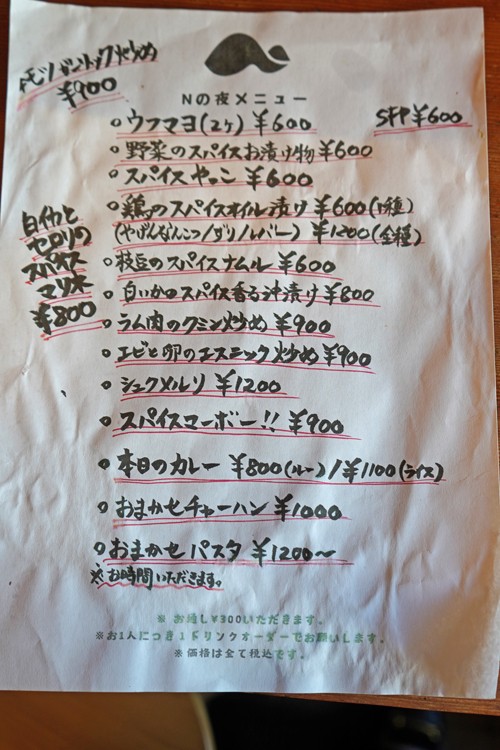 ¥900
Nの夜メニュー
SFP ¥600
ウフマヨ(2ヶ) ¥600
野菜のスパイスお漬け物 ¥600
スパイスやっこ ¥600
鶏のスパイスオイル漬け ¥600(1種)
(やげんなんこつ/ズリ/レバー) ¥1200(全種)
枝豆のスパイスナムル ¥600
白いかのスパイス香る沖漬け ¥800
ラム肉のクミン炒め ¥900
エビと卵のエスニック炒め ¥900
シュクメルリ ¥1200
スパイスマーボー!! ¥900
本日のカレー ¥800(ルー)/¥1100(ライス)
おまかせチャーハン ¥1000
おまかせパスタ ¥1200〜
※お時間いただきます。
白イカと
セロリの
スパイス
マリネ
¥800
※ お通し¥300いただきます。
※お1人につき1ドリンクオーダーでお願いします。
※価格は全て税込です。